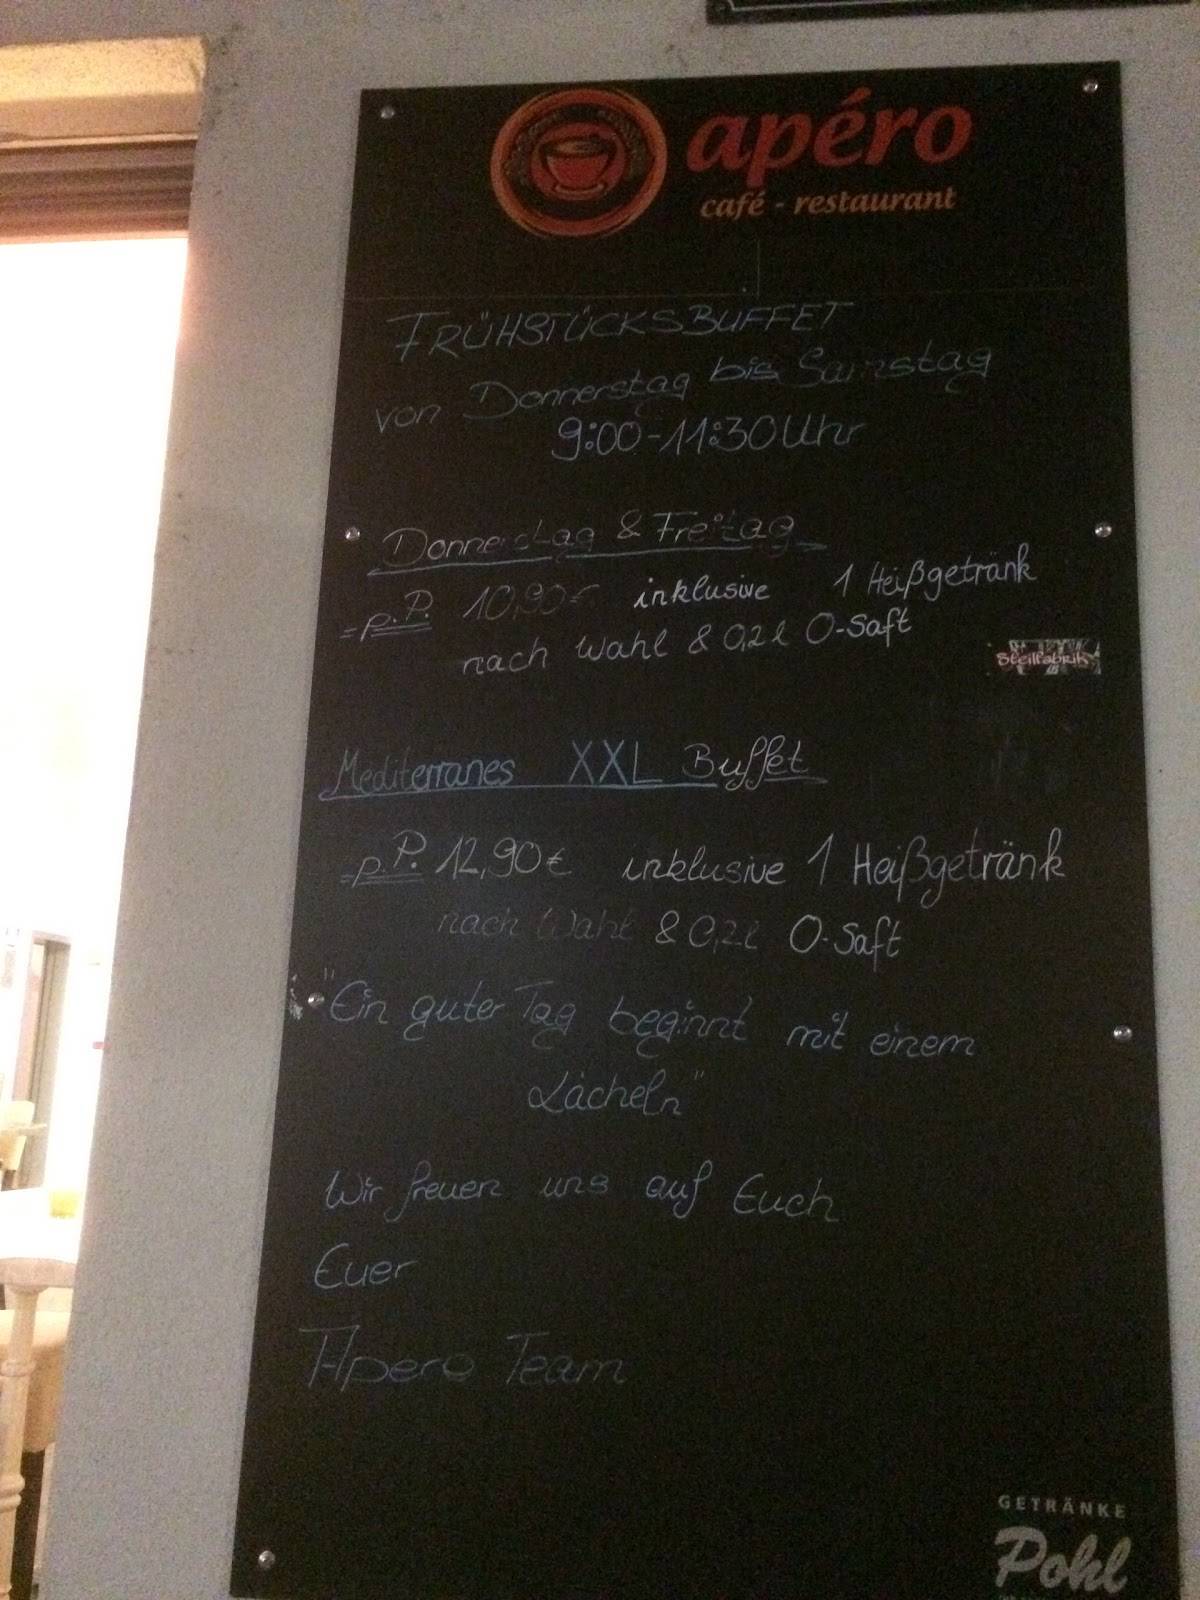 apéro
café - restaurant
FRÜHSTÜCKSBUFFET
von Donnerstag bis Samstag
9:00-11:30Uhr
Donnerstag & Freitag
p.P. 10,90€ inklusive 1 Heißgetränk
nach Wahl & 0,2l O-Saft
Steilfabrik
Mediterranes XXL Buffet
p.P. 12,90€ inklusive 1 Heißgetränk
nach Wahl & 0,2l O-Saft
"Ein guter Tag beginnt mit einem
Lächeln"
Wir freuen uns auf Euch
Euer
Apero Team
GETRÄNKE
Pohl